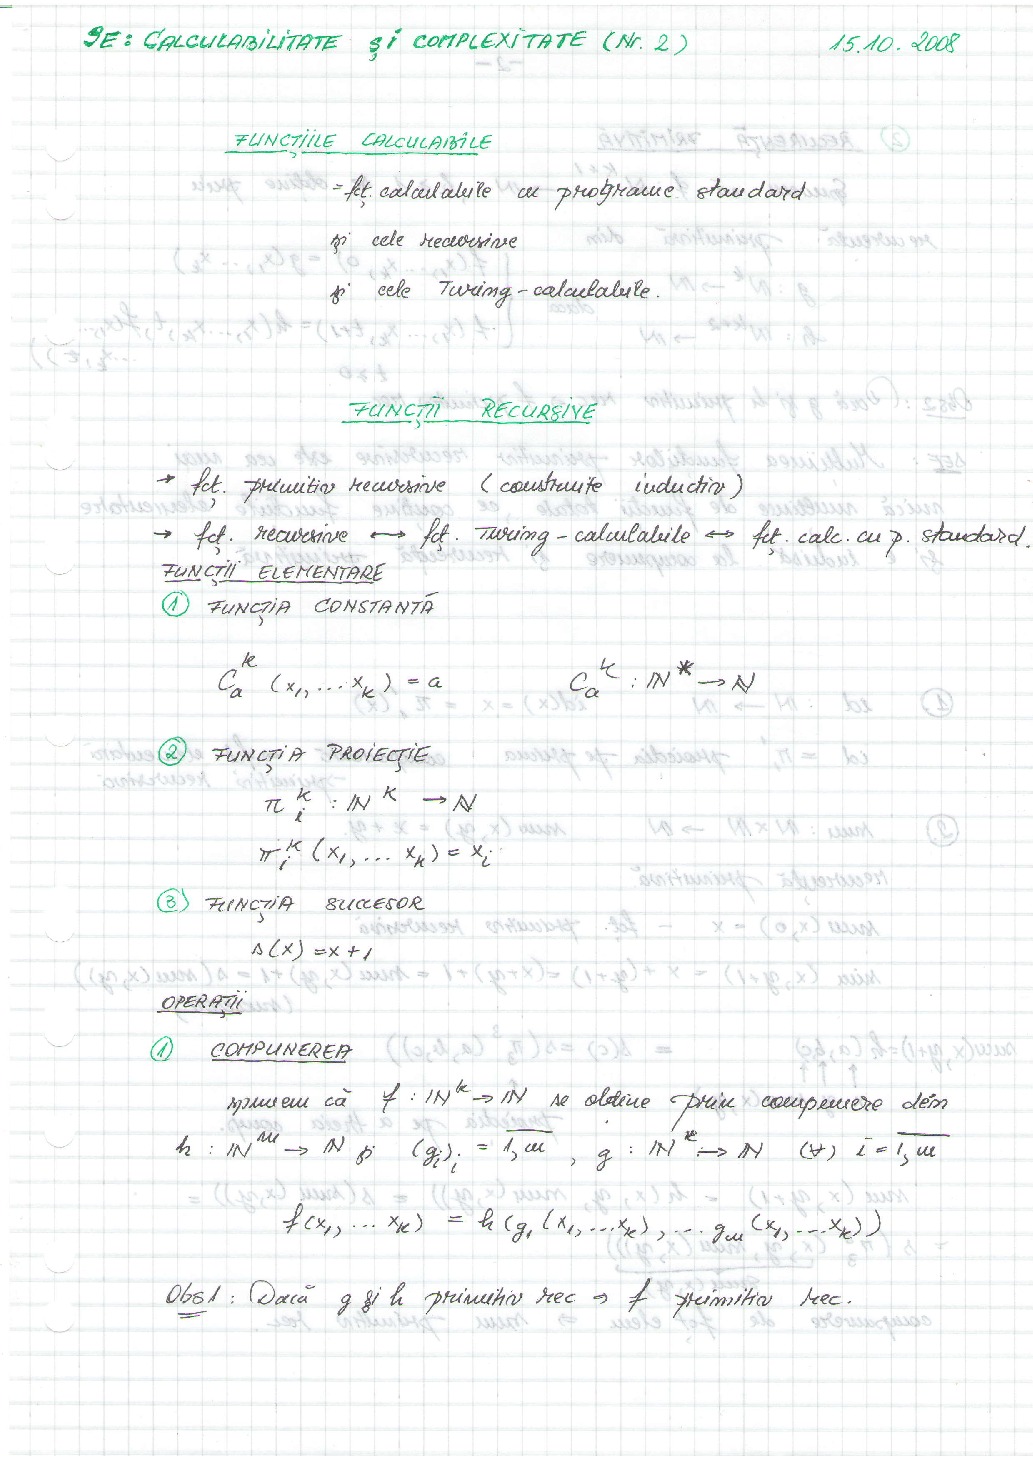 SE: CALCULABILITATE și COMPLEXITATE (Nr. 2) 15.10.2008
FUNCȚIILE CALCULABILE
= fcț. calculabile cu programe standard
și cele recursive
și cele Turing-calculabile.
FUNCȚII RECURSIVE
→ fcț. primitiv recursive (construite inductiv)
→ fcț. recursive ↔ fcț. Turing-calculabile ↔ fcț. calc. cu p. standard.
FUNCȚII ELEMENTARE
① FUNCȚIA CONSTANTĂ
C_a^k (x₁, ... x_k) = a C_a^k : ℕ^* → ℕ
② FUNCȚIA PROIECȚIE
π_i^k : ℕ^k → ℕ
π_i^k (x₁, ... x_k) = x_i
③ FUNCȚIA SUCCESOR
s(x) = x+1
OPERAȚII
① COMPUNEREA
spunem că f : ℕ^k → ℕ se obține prin compunere din
h : ℕ^m → ℕ și (g_i)_i = \overline{1,m} , g : ℕ^k → ℕ (∀) i = \overline{1,m}
f(x₁, ... x_k) = h(g₁(x₁, ... x_k), ... g_m(x₁, ... x_k))
Obs1 : Dacă g și h primitiv rec ⇒ f primitiv rec.